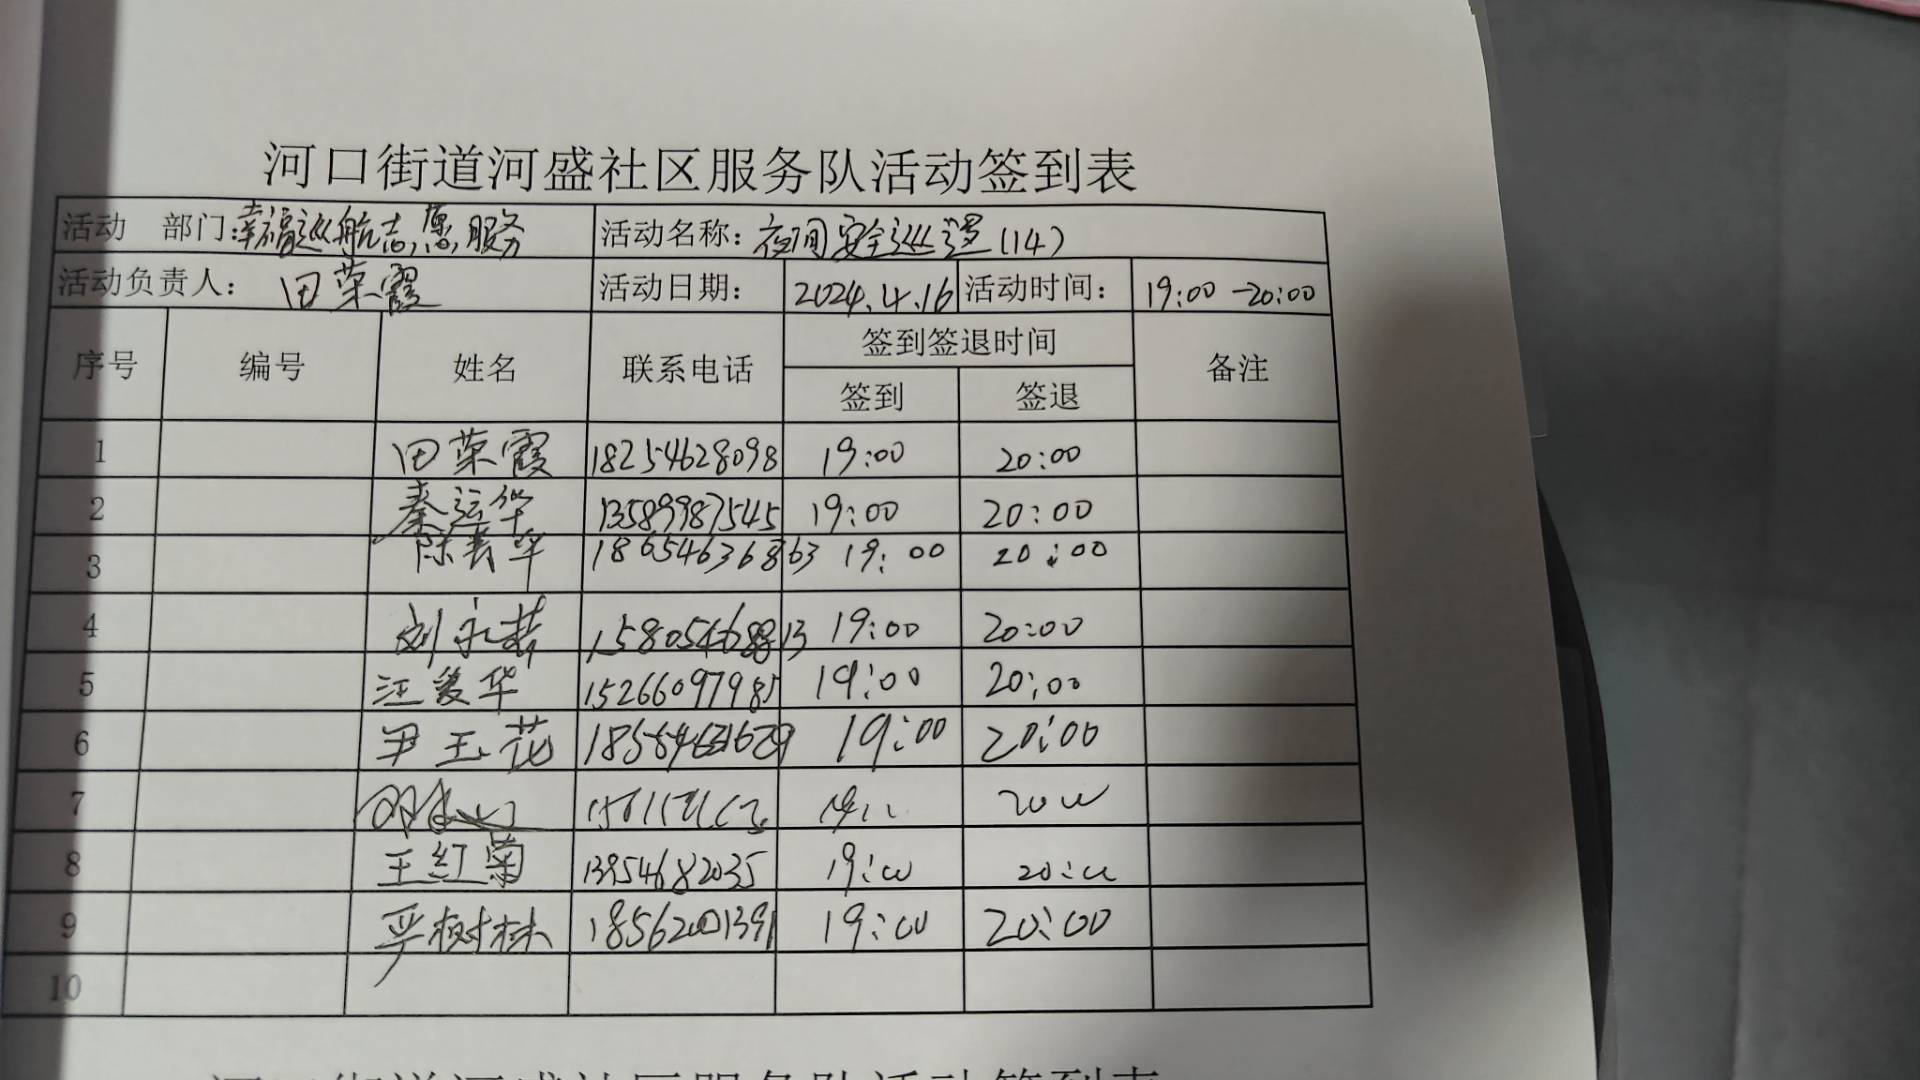 河口街道河盛社区服务队活动签到表
活动 部门:幸福巡航志愿服务 活动名称:夜间安全巡逻(14)
活动负责人: 田荣霞 活动日期: 2024.4.16 活动时间: 19:00-20:00
序号 编号 姓名 联系电话 签到签退时间 备注
签到 签退
1 田荣霞 18254628098 19:00 20:00
2 秦运华 13589987545 19:00 20:00
3 陈青华 18654636863 19:00 20:00
4 刘永 19:00 20:00
5 汪爱华 15266097985 19:00 20:00
6 尹玉花 19:00 20:00
7
8 王红菊 13954682035 19:00 20:00
9 严树林 18562001391 19:00 20:00
10
河口街道河盛社区服务队活动签到表